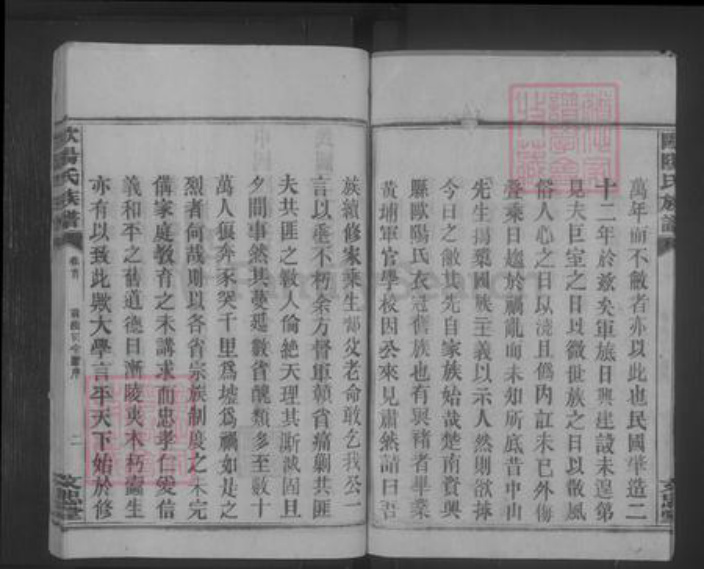 歐陽氏族譜
萬年而不敝者亦以此也民國肇造二
十二年於茲矣軍旅日興建設未遑第
見夫巨室之日以微世族之日以散風
俗人心之日以澆且僞內訌未已外侮
聲乘日趨於禍亂而未知所底昔中山
先生揭櫫國族主義以示人然則欲拯
今日之敝其先自家族始哉楚南資興
縣歐陽氏衣冠舊族也有與褚者畢業
黃埔軍官學校因公來見肅然請曰吾
族續修家乘生郶父老命敢乞我公一
言以垂不朽余方督軍贛省痛剿共匪
夫共匪之數人倫絶天理其澌滅固且
夕間事然其蔓延數省醜類多至數十
萬人狼奔豕突千里爲墟爲禍如是之
烈者何哉則以各省宗族制度之未完
備家庭教育之未講求而忠孝仁愛信
義和平之舊道德日漸陵夷木朽蠹生
亦有以致此歟大學言平天下始於修
歐陽氏族譜
卷首
二
文忠堂